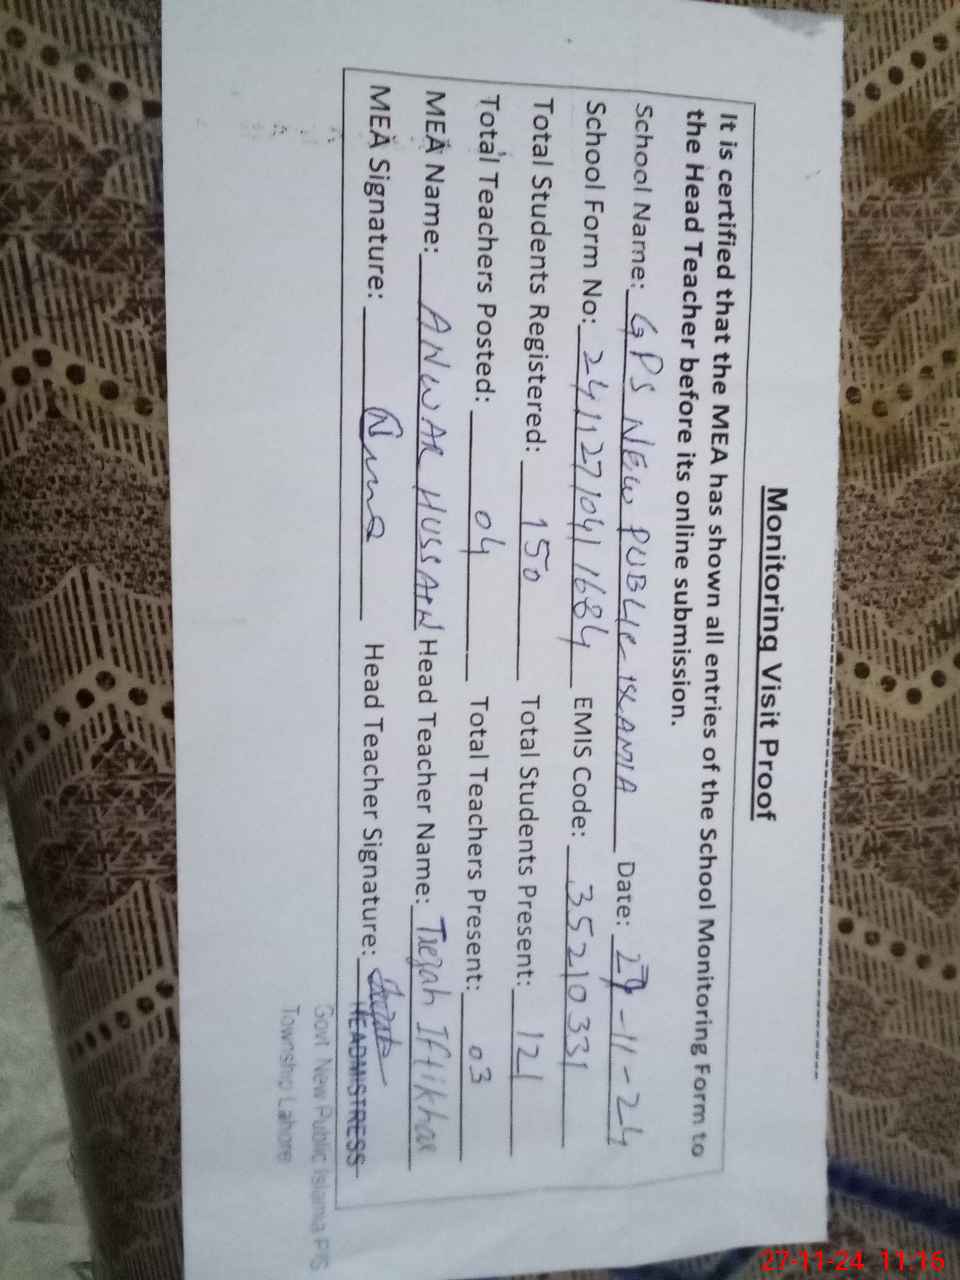 Monitoring Visit Proof
It is certified that the MEA has shown all entries of the School Monitoring Form to
the Head Teacher before its online submission.
School Name: GPS NEW PUBLIC ISLAMIA Date: 27-11-24
School Form No: 241127104111684 EMIS Code: 35210331
Total Students Registered: 150 Total Students Present: 121
Total Teachers Posted: 04 Total Teachers Present: 03
MEA Name: ANWAR HUSSAIN Head Teacher Name: Iftikhar
MEA Signature: Head Teacher Signature:
HEADMISTRESS
Govt New Public Islamia P/S
Township Lahore
27-11-24 11:16